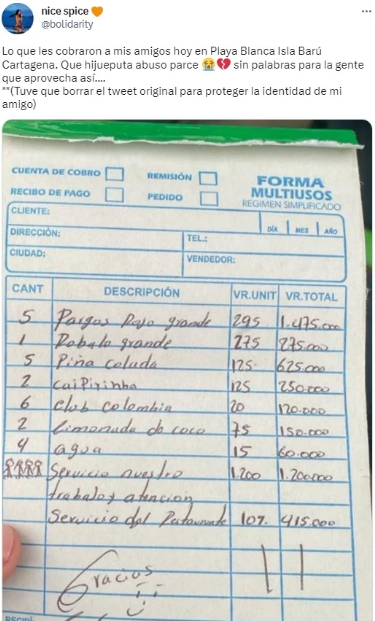 nice spice 🧡
@bolidarity
Lo que les cobraron a mis amigos hoy en Playa Blanca Isla Barú
Cartagena. Que hijueputa abuso parce 😭💔 sin palabras para la gente
que aprovecha así....
**(Tuve que borrar el tweet original para proteger la identidad de mi
amigo)
CUENTA DE COBRO REMISIÓN FORMA
RECIBO DE PAGO PEDIDO MULTIUSOS
REGIMEN SIMPLIFICADO
CLIENTE:
DÍA MES AÑO
DIRECCIÓN: TEL.:
CIUDAD: VENDEDOR:
CANT DESCRIPCIÓN VR.UNIT VR.TOTAL
5 Pargos Rojo grande 295 1.475.000
1 Robalo grande 275 275.000
5 Piña colada 125 625.000
2 caipirinha 125 250.000
6 club colombia 20 120.000
2 limonada de coco 75 150.000
4 agua 15 60.000
Servicio nuestro 1.200 1.200.000
trabalos atencion
Servicio del Restaurante 10%. 415.000
Gracias